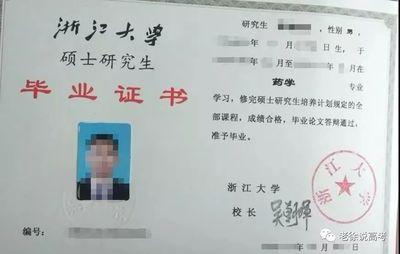 浙江大学
硕士研究生
毕业证书
编号：
研究生 ，性别 男，
年 月 日生，于
年 月至 年 月在
药学 专业
学习，修完硕士研究生培养计划规定的全
部课程，成绩合格，毕业论文答辩通过，
准予毕业。
浙江大学
校 长
年 月 日
浙江大学
老徐说高考